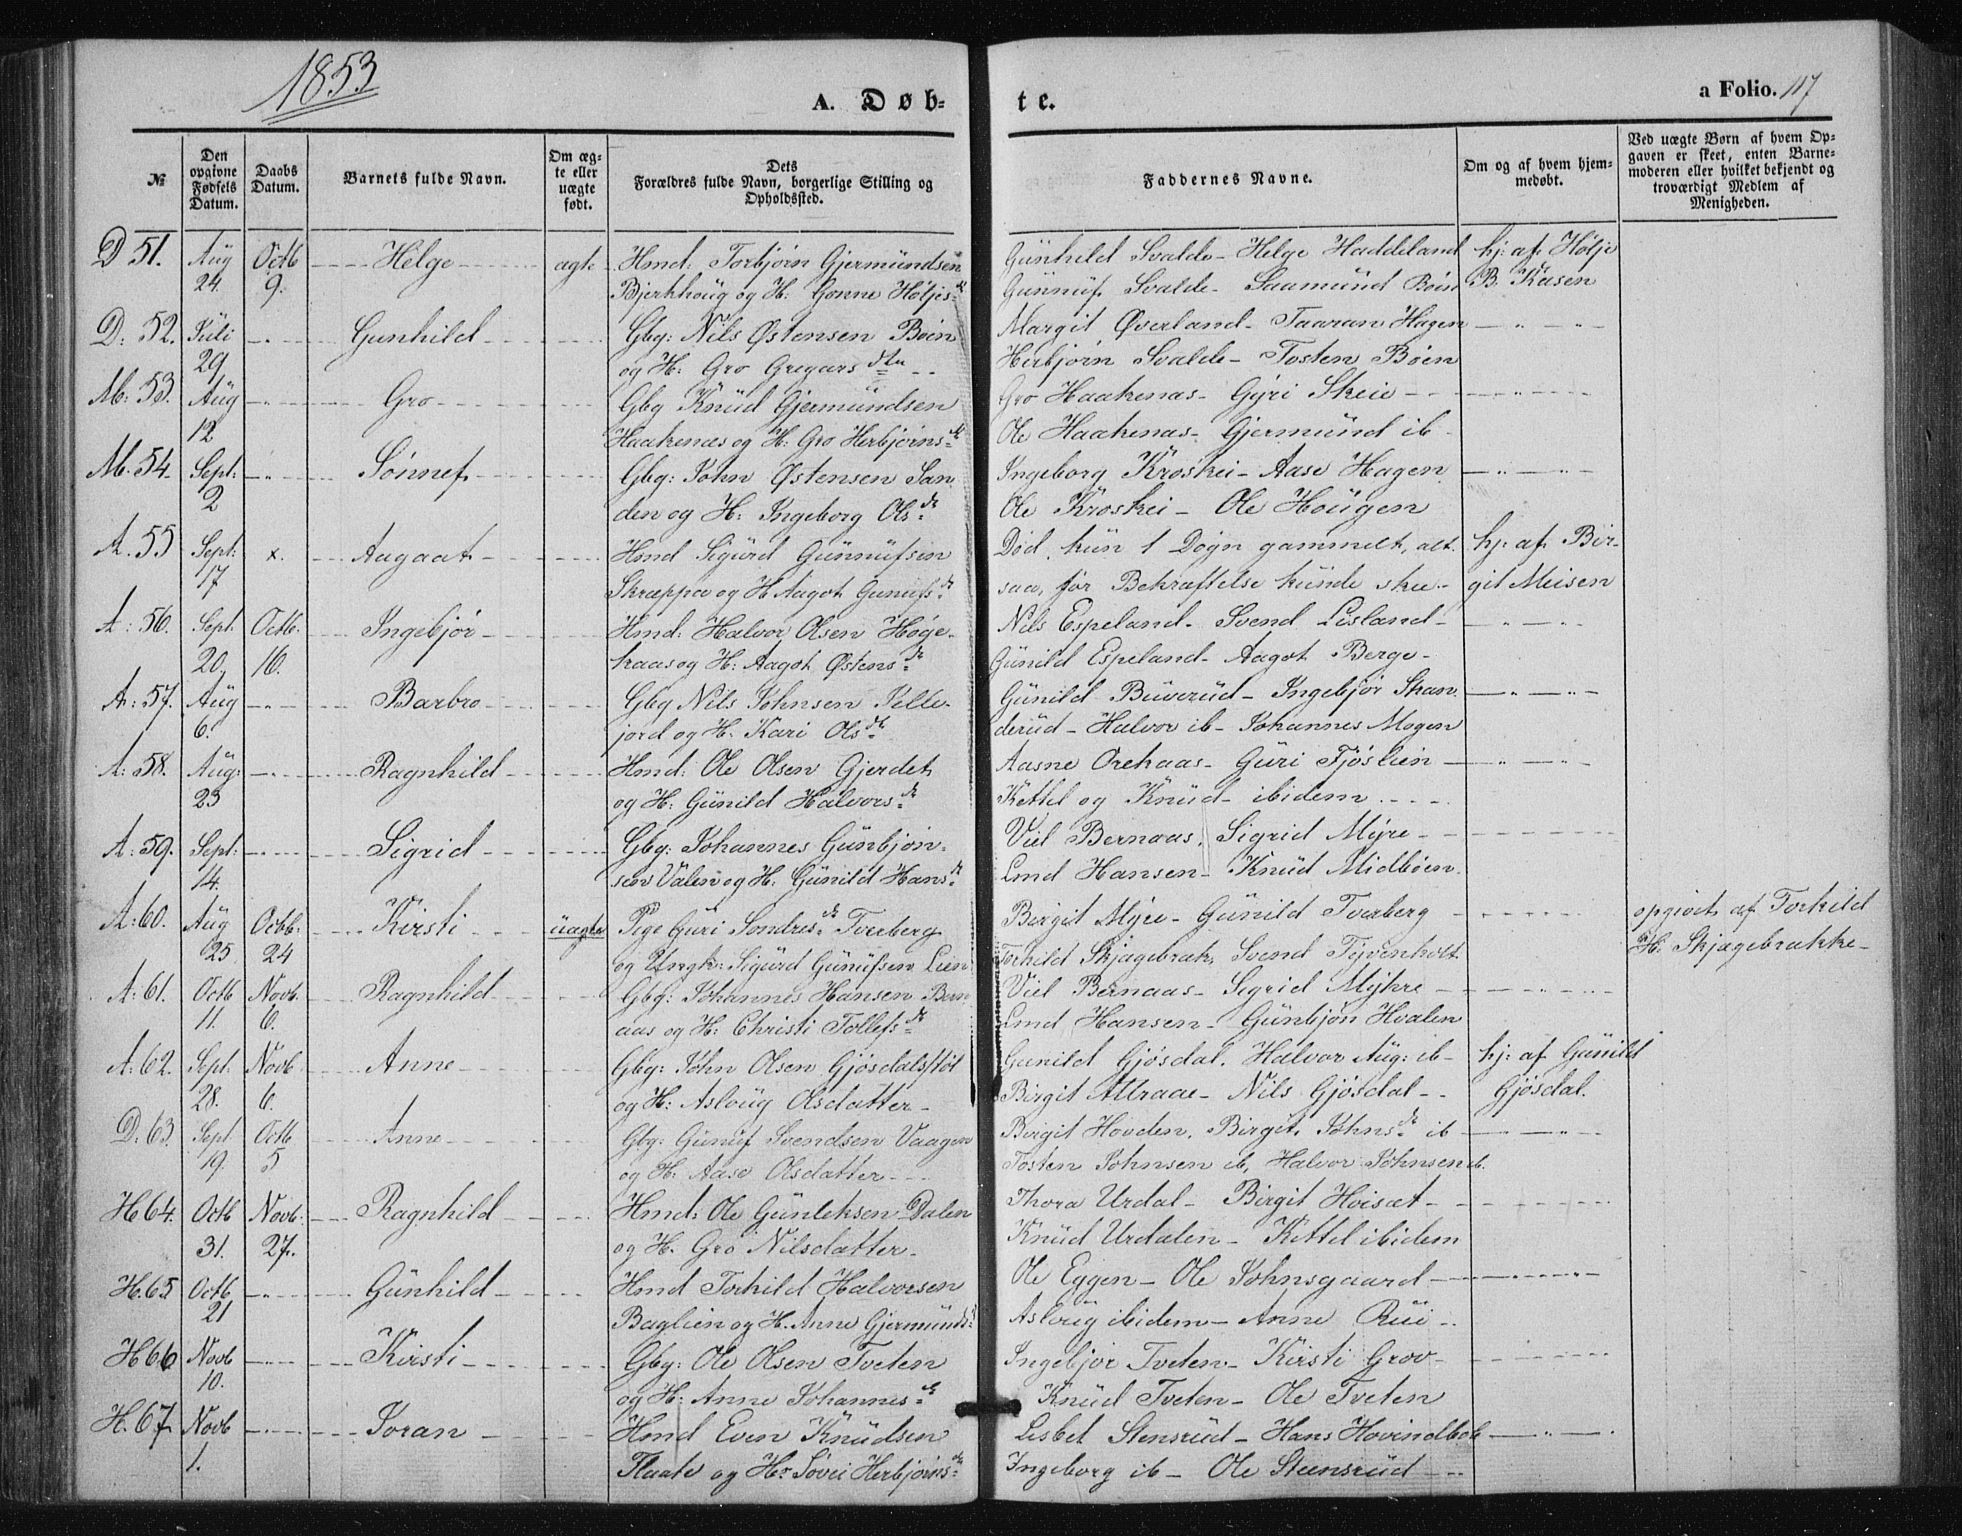 1853
A. Døb-
te.
a Folio. 117
№
Den opgivne Fødsels Datum.
Daabs Datum.
Barnets fulde Navn.
Om ægte eller uægte født.
Dets Forældres fulde Navn, borgerlige Stilling og Opholdssted.
Faddernes Navne.
Om og af hvem hjemmedøbt.
Ved uægte Børn af hvem Opgaven er skeet, enten Barnemoderen eller hvilket bekjendt og troværdigt Medlem af Menigheden.
D 51. Aug Octb Helge ægte Hmd: Torbjørn Gjermundsen Gunhild Svalde - Helge Haddeland hj: af Høljе
24. 9. Bjerkhoug og H: Gonne Høljesdr Gunnuf Svalde - Saamund Bøen B. Kaasen
D: 52. Juli - " - Gunhild Gbg: Nils Østensen Bøen Margit Øverland - Taaran Hagen - " -
29 og H: Gro Gregarsdtn Herbjørn Svalde - Tosten Bøen
M: 53. Aug - " - Gro Gbg Knud Gjermundsen Gro Haakenæs - Gyri Skeie - " -
12 Haakenæs og H: Gro Herbjørnsdr Ole Haakenæs - Gjermund ib -
M. 54. Sept: - " - Sønnef Gbg: John Østensen San Ingeborg Kroskei - Aase Hagen - " -
2 den og H: Ingeborg Olsdr Ole Kroskei - Ole Hougen
A. 55 Sept: x. Aagaat Hmd Sigurd Gunnufsen Død, kun 1 Døgn gammelt, alt hj: af Bir-
17 Skræppa og H Aagot Gunufsdr saa, før Bekræftelse kunde skee - git Meisen
A: 56. Sept. Octb. Ingebjør Hmd: Halvor Olsen Høge- Nils Espeland - Svend Lisland - " -
20. 16. kaas og H: Aagot Østensdr Gunild Espeland - Aagot Berge -
A: 57. Aug - " - Barbro Gbg Nils Johnsen Kelle- Gunild Buverud - Ingebjør Skan - " -
6. jord og H. Kari Olsdr derud - Halvor ib - Johannes Mogen
A: 58. Aug: - " - Ragnhild Hmd: Ole Olsen Gjerdet Aasne Orekaas - Guri Fjøslien - " -
23 og H: Gunild Halvorsdr Kettel og Knud - ibidem
A: 59. Sept: - " - Sigrid Gbg: Johannes Gunbjøn- Viel Bernaas, Sigrid Myre -
14. sen Valen og H: Gunild Hansdr Lmd Hansen - Knud Midbøen
A: 60. Aug Octb: Kirsti uægte Pige Guri Sondresdr Tverberg Birgit Myre - Gunild Tverberg opgivet af Torkild
25 24 og Ungk: Sigurd Gunufsen Lien Torkild Skjagebrak, Svend Tyvenholt H: Skjagebrakke -
A: 61. Octb Novb. Ragnhild Gbg: Johannes Hansen Bern Viel Bernaas - Sigrid Myhre
11. 6. aas og H: Christi Tollefsdr Lmd Hansen - Gunbjøn Hvalen
A: 62. Sept. Novb Anne Gbg: John Olsen Gjøsdalsstøl Gunild Gjøsdal. Halvor Aug: ib - hj: af Gunild
28. 6. og H: Aslaug Olsdatter - Birgit Attraae - Nils Gjøsdal - - Gjøsdal.
D: 63. Sept Octb Anne Gbg: Gunuf Svendsen Vaagen Birgit Hovden, Birgit Johnsdr ib - " -
19. 5 og H: Aase Olsdatter Tosten Johnsen ib, Halvor Johnsen ib.
H 64. Octb Novb. Ragnhild Hmd: Ole Gunleksen Dalen Thora Urdal - Birgit Hvisæt -
31. 27. og H. Gro Nilsdatter - Knud Urdalen - Kittel ibidem
H. 65 Octb - " - Gunhild Hmd Torkild Halvorsen Ole Eggen - Ole Johnsgaard - " -
21 Baglien og H. Anne Gjermundsd Aslaug ibidem - Anne Rui -
H 66 Novb - " - Kirsti Gbg: Ole Olsen Tveten Ingebjør Tveten - Kirsti Grov -
10. og H: Anne Johannesdr Knud Tveten - Ole Tveten
H. 67 Novb - " - Joran Hmd Even Knudsen Lisbet Stensrud - Hans Hovindbek - " -
1. Flaate og H: Søvei Herbjørnsdr Ingeborg ib - Ole Steensrud -